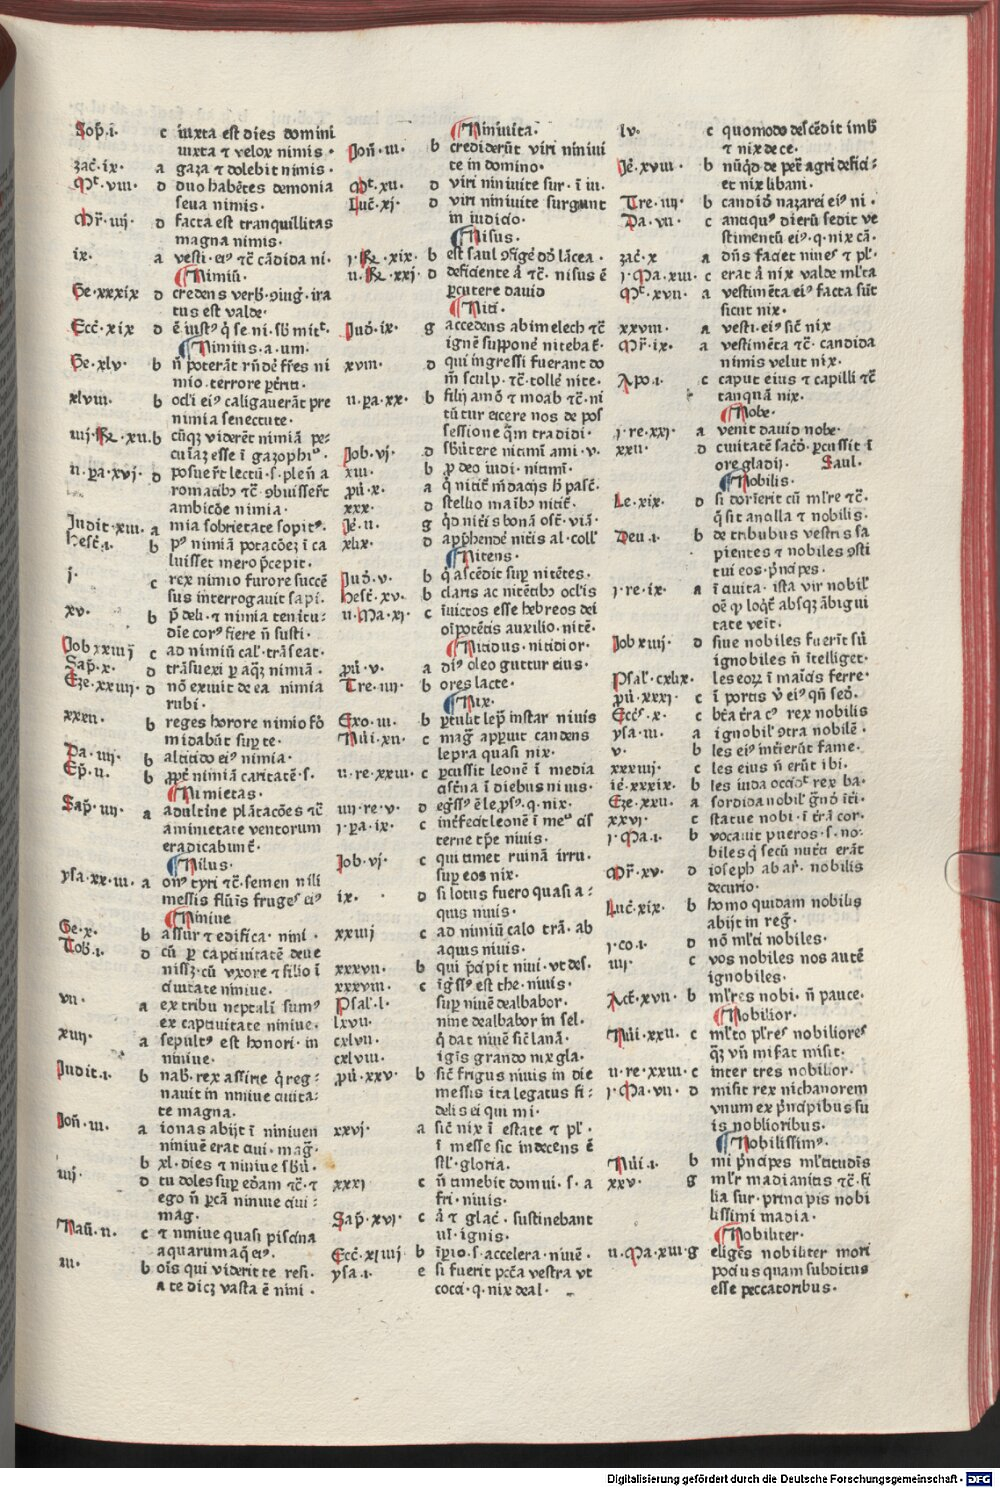 Soph̄.i. c iuxta est dies domini
iuxta ⁊ velox nimis.
zac̄.ix. a gaza ⁊ dolebit nimis.
Mt̄.viii. d duo habētes demonia
seua nimis.
Mr̄.iiij. d facta est tranquillitas
magna nimis.
ix. a vesti.eiꝰ ⁊c̄ cādida ni.
Nimiū.
Ge.xxxix d credens verb̄.ɔiuḡ.ira
tus est valde.
Ecc̄.xix d
Nimius.a.um.
Ge.xlv. b n̄ poterāt rn̄dē fr̄es ni
mio.terrore
xlviii. b ocl'i eiꝰ caligauerāt pre
nimia senectute.
b cūqꝫ viderēt nimiā pe
cuiaꝫ esse ī gazophiᵒ.
ij.pa.xvj. d posuer̄t lectū.s.plen̄ a
romatibꝫ ⁊c̄
ambicōe nimia.
Judit.xiii. a mia sobrietate sopitꝰ.
hest̄.i. b pꝰ nimiā potacōeꝫ ī ca
luisset mero p̄cepit.
j. c rex nimio furore succē
sus interrogauit sapi.
xv. b
dīe corꝰ fiere n̄ susti.
Job xxiiij c ad nimiū cal'.trāseat.
Sap̄.x. d trāsuexi ꝑ aqꝫ nimiā.
Eze.xxiiij. d nō exiuit de ea nimia
rubi.
xxxij. b reges horore nimio fō
midabūt suꝑ te.
Da.iiij. b altitido eiꝰ nimia.
Ep̄.ij. b ꝓpt̄ nimiā caritatē.s.
Nimietas.
Sap̄.iiij. a adultine plātacōes ⁊c̄
a nimietate ventorum
eradicabunt̄.
Nilus.
ysa.xx.iii. a onꝰ tyri ⁊c̄.semen nili
messis fluīs frugeˢ eiꝰ
Niniue
Ge.x. b assur ⁊ edifica.nini.
Tob̄.i. d cū ꝑ captiuitatē deue
nisꝫ.cū vxore ⁊ filio ī
ciuitate niniue.
vii. a ex tribu neptali sumꝰ
ex captiuitate niniue.
xiiij. a sepultꝰ est honori.in
niniue.
Judit.i. b nab̄.rex assirie q̄ reg-
nauit in niniue ciuita-
te magna.
Jon̄.iii. a ionas abijt ī niniuen
niniuē erat ciui.mag̅.
b xl.dies ⁊ niniue sb̄ū.
iiij. d tu doles suꝑ edām ⁊c̄.⁊
ego n̄ ꝑcā niniue ciui-
mag̅.
Naū.ij. c ⁊ niniue quasi piscina
aquarum aq̄ eiꝰ.
iii. b oīs qui viderit te resi.
a te dicꝫ vasta ē nini.
Niniuita.
Jon̄.iii. b crediderūt viri niniui
te in domino.
Mt̄.xii. d viri niniuite sur.ī iu.
Luc̄.xj. d viri niniuite surgunt
in iudicio.
Nisus.
j.ꝶ.xix. b est saul ɔfigē dō lācea.
ij.ꝶ.xxj. d deficiente ā ⁊c̄.nisus ē
ꝑcutere dauid
Niti.
Jud̄.ix. g accedens abimelech ⁊c̄
ignē supponē nitebat̄.
xviii. d qui ingressi fuerant do
m̄ sculp.⁊c̄.tollē nite.
ij.pa.xx. b filij amō ⁊ moab ⁊c̄.ni
tūtur eicere nos de pos
sessione q̄m tradidi.
Job.vj. d sb̄utere nitimī ami.v.
xiii. b ꝓ deo iudi.nitimī.
ꝓū.x. a q̄ nitit̄ mdacijs
xxx. d stellio maībꝫ nitit̄.
Je̅.ij. g qd̄ nitis bonā ost̄.viā.
xlix. d app̄hendē nitis al.coll'
Nitens.
Jud̄.v. b q̄ ascēdit suꝑ nitētes.
hest̄.xv. b claris ac nitētibꝫ ocl'is
ij.Ma.xj. c īuictos esse hebreos dei
oīpotētis auxilio.nitē.
Nitidus.nitidior.
ꝓū.v. a diꝰ oleo guttur eius.
Tre.iiij. b ores lacte.
Nix.
Exo.iii. b ꝓtulit lep̄ instar niuis
Nūi.xii. c mag̅ apꝑuit candens
lepra quasi nix.
ij.re.xxiii. c ꝑcussit leonē ī media
cist̄na ī diebus niuis.
iiij.re.v. d
j.pa.ix. c
terne tp̄e niuis.
Job.vj. c qui timet ruinā irru.
suꝑ eos nix.
ix. d si lotus fuero quasi a-
quis niuis.
xxiiij c ad nimiū calo trā.ab
aquis niuis.
xxxvii. b qui p̄cipit niui.vt des.
xxxviii. c īg̅ssꝰ est the.niuis.
Psal'.l. suꝑ niuē dealbabor.
lxvii. niue dealbabor in sel.
cxlvii. q̄ dat niuē sic̄ lanā.
cxlviii. ignis grando nix gla.
ꝓū.xxv. b sic̄ frigus niuis in die
messis ita legatus fi-
delis ei qui mi.
xxvj. a sic̄ nix ī estate ⁊ pl'.
ī messe sic indecens ē
stl'.gloria.
xxxj c n̄ timebit domui.s.a
fri.niuis.
Sap̄.xvj. c ā ⁊ glac̄.sustinebant
uī.ignis.
Ecc̄.xliiij b īꝑio.s.accelera.niuē.
ysa.i. e si fuerit pctā vestra vt
cocci.q.nix deal.
lv. c quomodo descēdit imb̄
⁊ nix de ce.
Je̅.xviii. b nūqd̄ de pet̄ agri defici-
et nix libani.
Tre.iiij. b candid̄ nazarei eiꝰ ni.
Da.vii. c antiqꝰ dierū sedit ve
stimentū eiꝰ.q.nix cā.
zac̄.x a dn̄s faciet niues ⁊ pl'.
j.Ma.xiii. c erat ā nix valde ml'ta
Mt̄.xvii. a vestimēta eiꝰ facta sūt
sicut nix.
xxviii. a vesti.eiꝰ sic̄ nix
Mr̄.ix. a vestimēta ⁊c̄.candida
nimis velut nix.
Apo.i. c caput eius ⁊ capilli ⁊c̄
tanquā nix.
Nobe.
j.re.xxj. a venit dauid nobe.
xxii. d ciuitatē sacd̄.ꝑcussit ī
ore gladij. Saul.
Nobilis.
Le.xix. d si dormierit cū ml're ⁊c̄.
q̄ sit ancilla ⁊ nobilis.
Deu.i. b de tribubus vestris sa
pientes ⁊ nobiles ɔsti
tui eos.p̄ncipes.
j.re.ix. a ī ciuita.ista vir nobil'
oē qd̄ loqt̄ absqꝫ ābigui
tate veīt.
Job xviij. d siue nobiles fuerīt sū
ignobiles n̄ ītelliget.
Psal'.cxlix. les eoꝝ ī maīcis ferre.
ꝓū.xxxj. c ī portis v̄ eiꝰ qn̄ sed̄.
Ecc̄ˢ.x. c bt̄a t̄ra cꝰ rex nobilis
ysa.iii. a ignobil' ɔtra nobilē.
v. b les eiꝰ int̄ierūt fame.
xxxiiij. c les eius n̄ erūt ibi.
ie̅.xxxix. b les iuda occidit rex ba.
Eze.xxii. a sordida nobil'
xxvj. c statue nobi.ī t̄rā cor.
j.Ma.i. b vocauit pueros.s.no-
biles q̄ secū nut̄ti erāt
Mr̄.xv. d ioseph ab ar̄.nobilis
decurio.
Luc̄.xix. b homo quidam nobilis
abijt in reg̅.
j.co.i. d nō ml'ti nobiles.
iiij. c vos nobiles nos autē
ignobiles.
Act̄.xvii. b ml'res nobi.n̄ pauce.
Nobilior.
Nūi.xxii. c ml'to pl'res nobiliores
q̄ꝫ vn̄ miserat misit.
ij.re.xxiii. c inter tres nobilior.
j.Ma.vii. d misit rex nichanorem
vnum ex p̄ncipibus su
is nobilioribus.
Nobilissimꝰ.
Nūi.i. b mi p̄ncipes ml'titudīs
xxv. g ml'r madianitis ⁊c̄.fi
lia sur.principis nobi
lissimi madia.
Nobiliter.
ij.Ma.xiiii. g eligēs nobiliter mori
pocius quam subditus
esse peccatoribus.
Digitalisierung gefördert durch die Deutsche Forschungsgemeinschaft - DFG